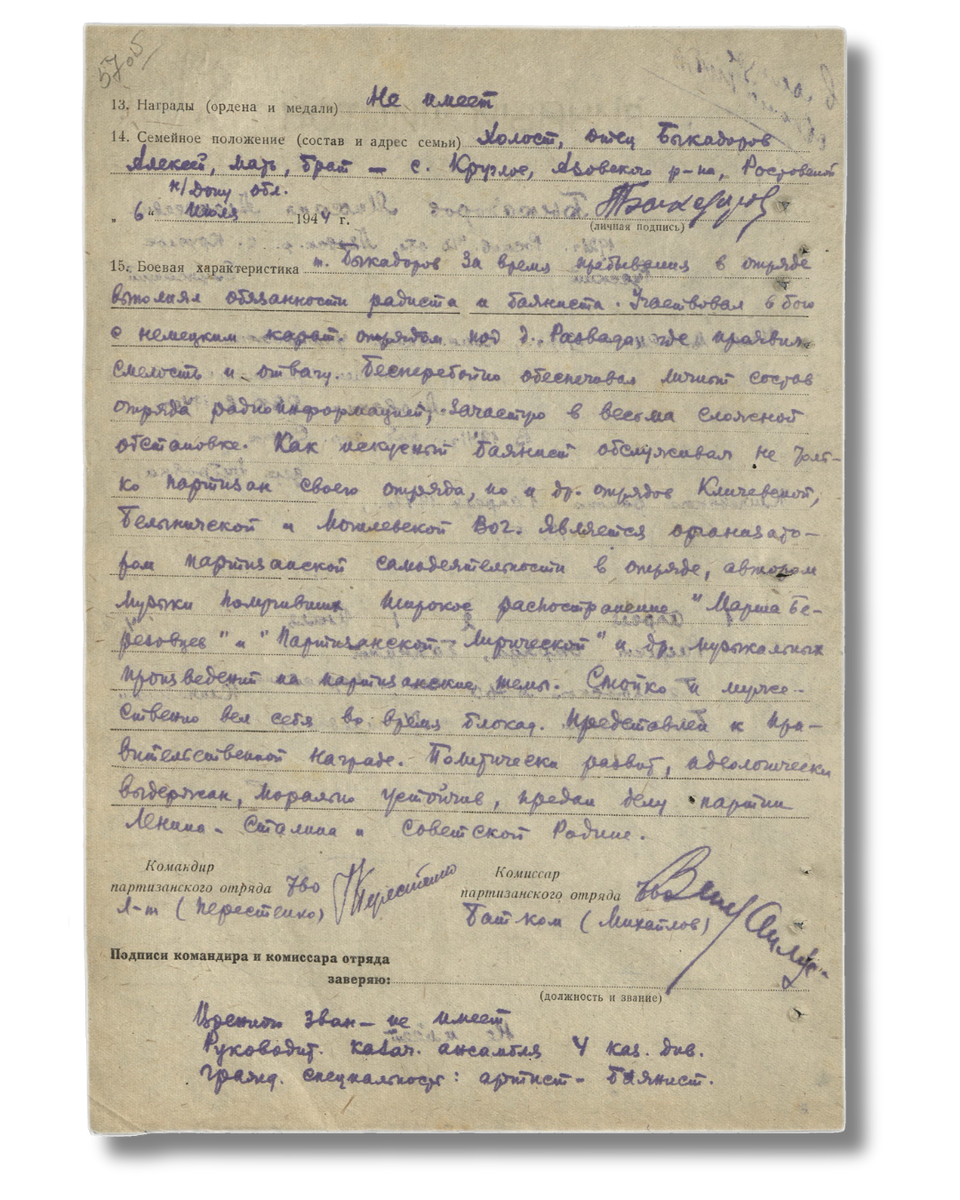 5705
13. Награды (ордена и медали) Не имеет
14. Семейное положение (состав и адрес семьи) Холост, отец Быкадоров
Алексей, мать, брат — с. Круглое, Азовского р-на, Ростовской
н/Дону обл.
„ 6 " Июля 1944 г.
(личная подпись)
15. Боевая характеристика т. Быкадоров за время пребывания в отряде
выполнял обязанности радиста и баяниста. Участвовал в бою
с немецким карат. отрядом под д. Развада где проявил
смелость и отвагу. Бесперебойно обеспечовал личный состав
отряда радиоинформацией, зачастую в весьма сложной
обстановке. Как искусный баянист обслуживал не толь-
ко партизан своего отряда, но и др. отрядов Кличевской,
Белыничской и Могилевской ВОГ. Является организато-
ром партизанской самодеятельности в отряде, автором
музыки получивших широкое распостранение "Марша Бе-
резовцев" и "Партизанской Лирической" и др. музыкальных
произведений на партизанские темы. Стойко и муже-
ственно вел себя во время блокад. Представлен к пра-
вительственной награде. Политически развит, идеологически
выдержан, морально устойчив, предан делу партии
Ленина - Сталина и Советской Родине.
Командир
партизанского отряда 760
Л-т (Перестенко) Перестенко
Комиссар
партизанского отряда 760
Бат ком (Михайлов)
Подписи командира и комиссара отряда
заверяю:
(должность и звание)
Воениого зван — не имеет
Руководит. казач. ансамбля 4 каз. див.
гражд. специальность: артист - баянист.